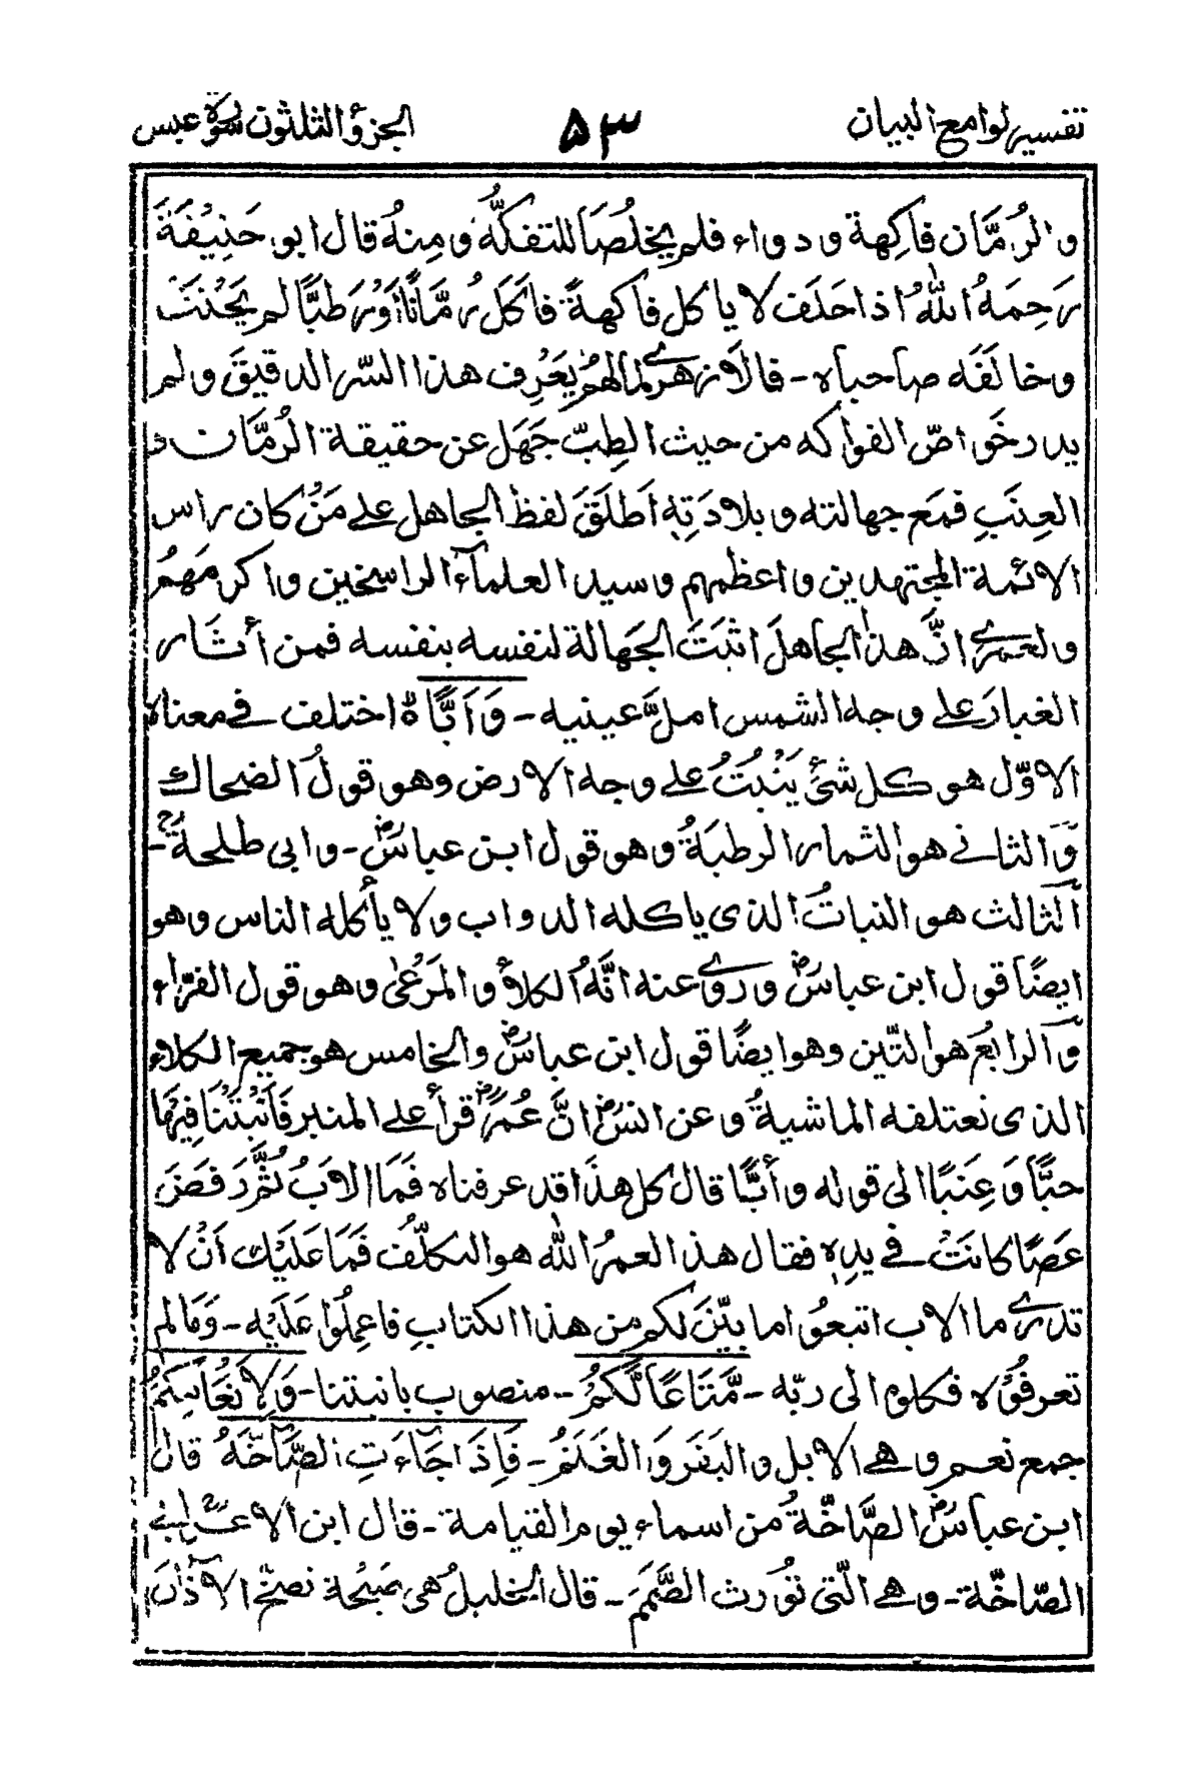 تفسير لوامع البيان ۵۳ الجزؤ الثلثون سورة عبس
والرُمَّان فاكِهة ودواء فلم يخلُصَا للتفكُّه ومِنهُ قال ابو حَنِيفَةَ
رَحِمَهُ اللهُ اذا حَلَف لا ياكل فاكهةً فاَكَلَ رُمَّانًا اَوْ رَطبًا لم يَحْنَثْ
وخالَفَه صاحباه - فالاَزهرى لمالم يَعْرِف هذا السّر الدقيقَ ولم
يدر خَواصّ الفواكه من حيث الطِبّ جَهَل عن حقيقة الرُمَّان و
العِنَبِ فمَع جهالته وبلادَتِه اَطلَقَ لفظ الجاهل على مَنْ كان راس
الائمة المجتهدين واعظمهم وسيد العلمآء الراسخين واكرمَهمُ
ولعمرى انَّ هذا الجاهلَ اثبَتَ الجَهالة لنفسه بنفسه فمن أثَار
الغبارَ على وجه الشمس املَّ عينيه - وَاَبًّا اختلف فى معناه
الاوّل هو كل شئ يَنْبُتُ على وجه الارض وهو قولُ الضحاك
وَالثانى هو الثمار الرطبَةُ وهو قول ابن عباسؓ - وابى طلحةؓ -
اَلثالث هو النباتُ الذى ياكله الدواب ولا يأكله الناس وهو
ايضًا قول ابن عباسؓ ورُوى عنه انَّهُ الكلأ والمَرْعٰى وهو قول الفرّاء
وَالرابعُ هو التّين وهو ايضًا قول ابن عباسؓ والخامس هو جميع الكلاء
الذى تعتلفه الماشيةُ وعن انسؓ انَّ عُمَرؓ قرأ على المنبر فَاَنْبَتْنَا فِيْهَا
حبًّا وَعِنَبًا الى قوله وأبًّا قال كل هذَا قد عرفناه فَمَا الابُ ثُمَّ رَفَضَ
عَصًا كانَتْ فى يدِه فقال هذا لعمرُ الله هو التكلّفُ فَمَا عَلَيْك اَنْ لا
تدرى ما الاب اتبعُوا ما بيّنَ لكم من هذا الكتابِ فاعمِلُوا عَلَيْه - وَمَالم
تعرفُوْه فكلوه الى ربّه - مَّتَاعًا لَّكُمْ - منصوب بانبتنا - وَلِاَنْعَامِكُمْ
جمع نعم وهى الابل والبَقَر وَالغَنَمُ - فَاِذَا جَآءَتِ الصَّآخَّةُ قال
ابن عباسؓ الصَّاخَّةُ من اسماء يوم القيامة - قال ابن الاعرابى
الصّاخّة - وهى الّتى تُورث الصَّمَمَ - قال الخليلُ هى صَيْحَة تصخّ الآذانَ